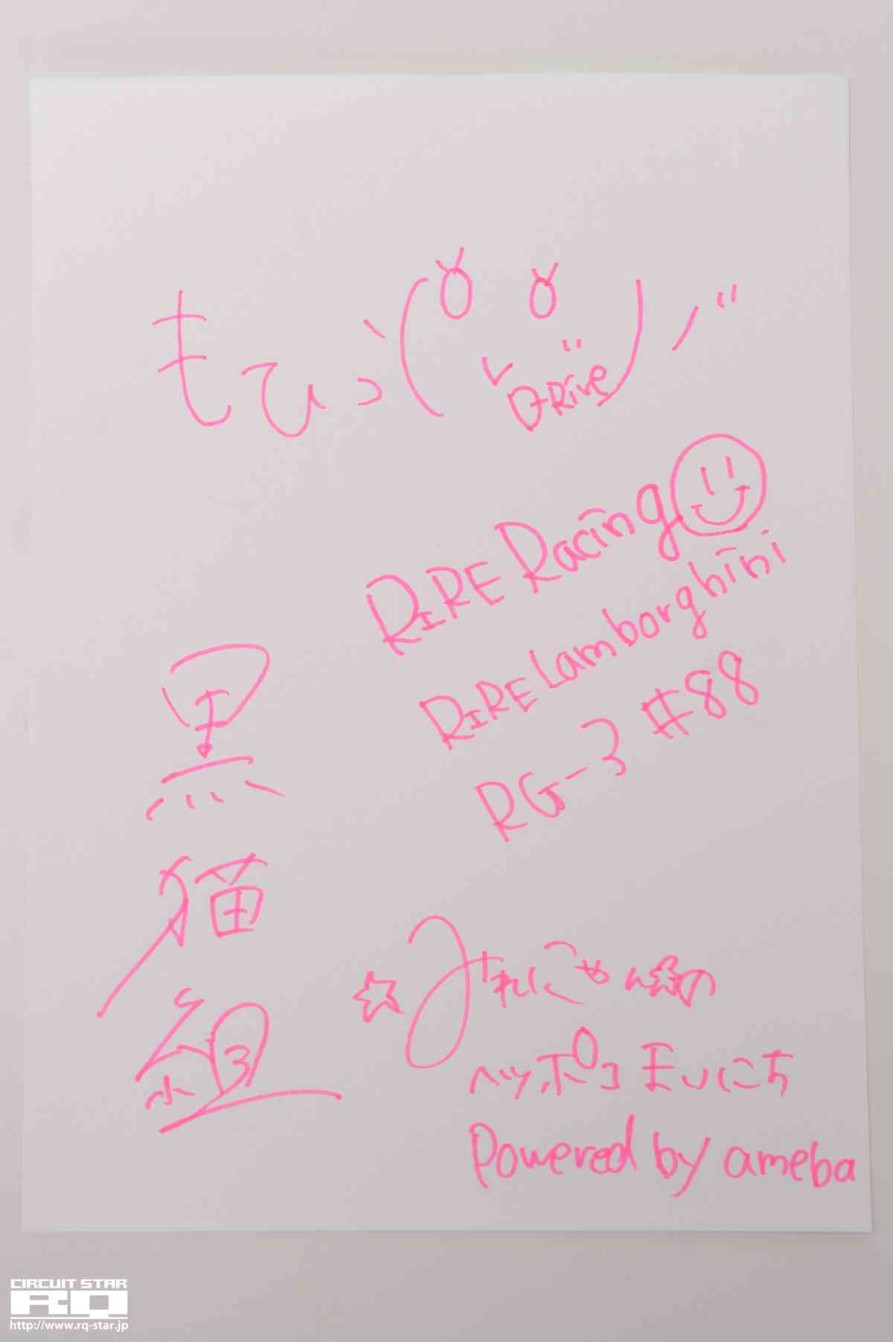 もひっ
D-Rive
RiRE Racing
RiRE Lamborghini
RG-3 #88
黒猫組
☆みれにゃん☆の
ヘッポコまいにち
Powered by ameba
CIRCUIT STAR
RQ
http://www.rq-star.jp